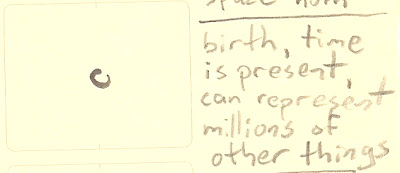 birth, time
is present,
can represent
millions of
other things